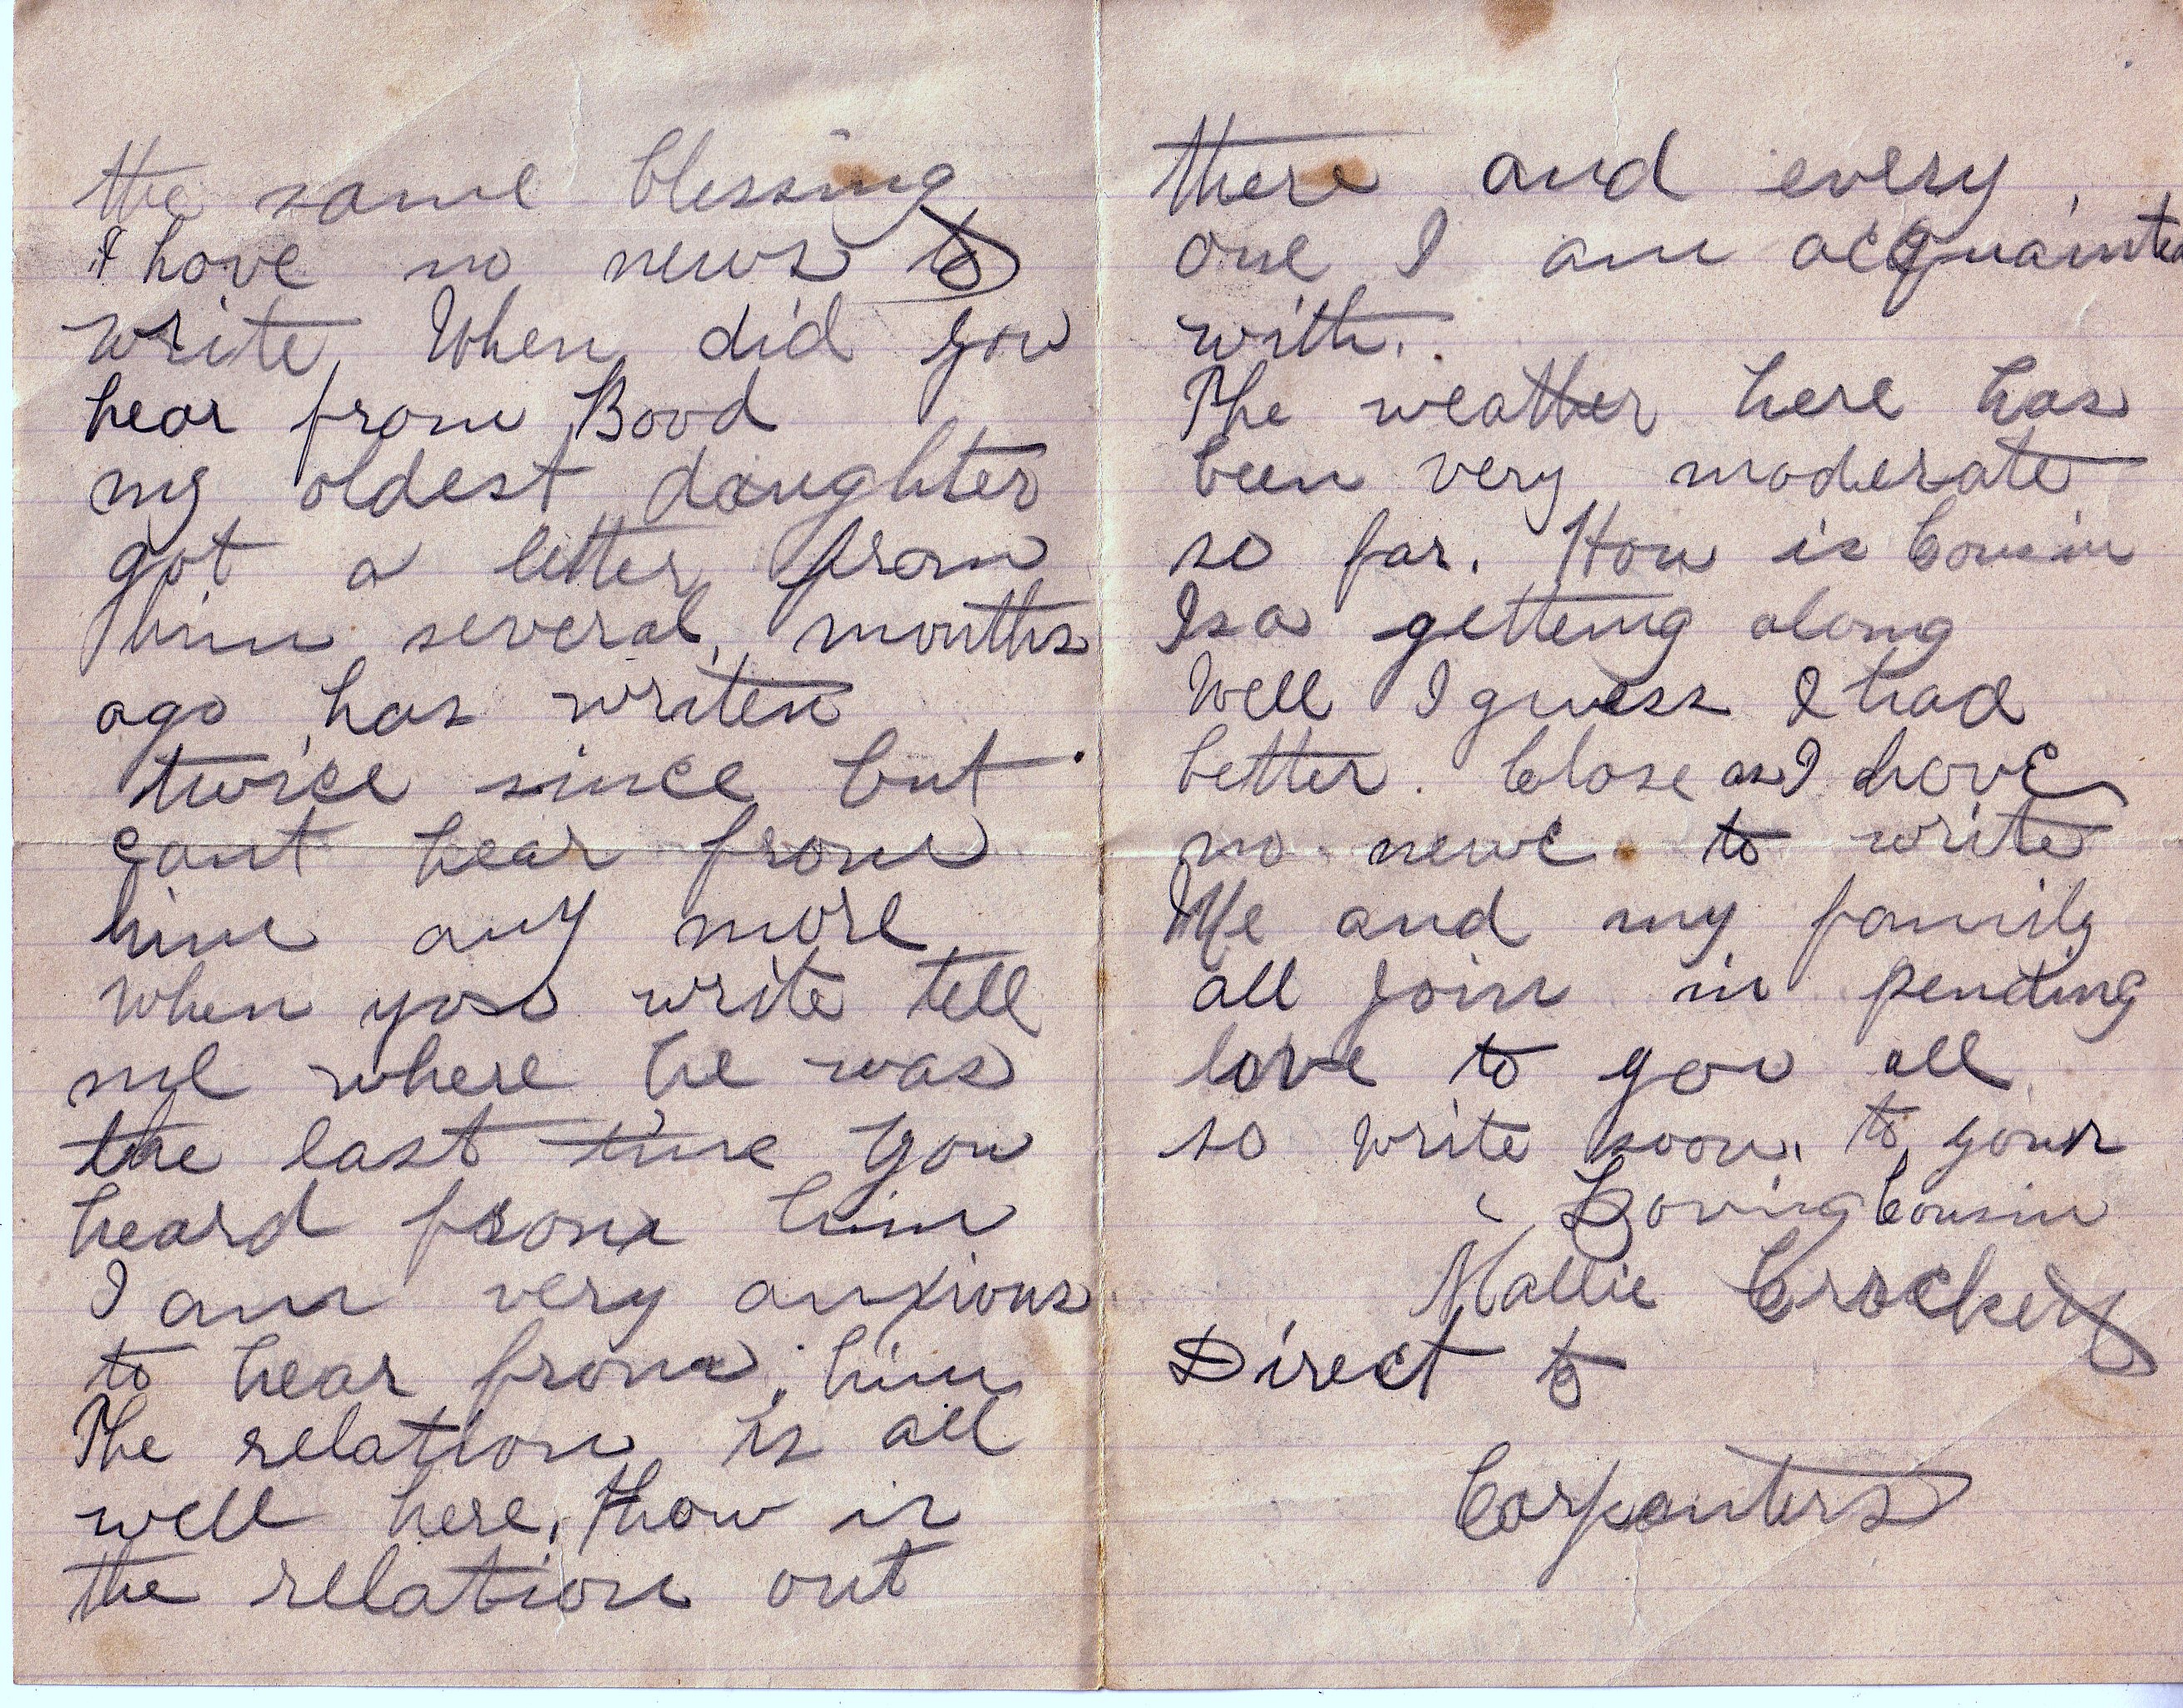 the same blessing
I have no news to
write When did you
hear from Bood
my oldest daughter
got a letter from
him several months
ago has writen
twice since but
cant hear from
him any more
when you write tell
me where he was
the last time you
heard from him
I am very anxious
to hear from him
The relation is all
well here, how is
the relation out
there and every
one I am acquainted
with.
The weather here has
been very moderate
so far. How is Cousin
Isa getting along
Well I guess I had
better close as I have
no news to write
Me and my family
all join in sending
love to you all
so write soon. to your
Loving Cousin
Mallie Crockery
Direct to
Carpenters